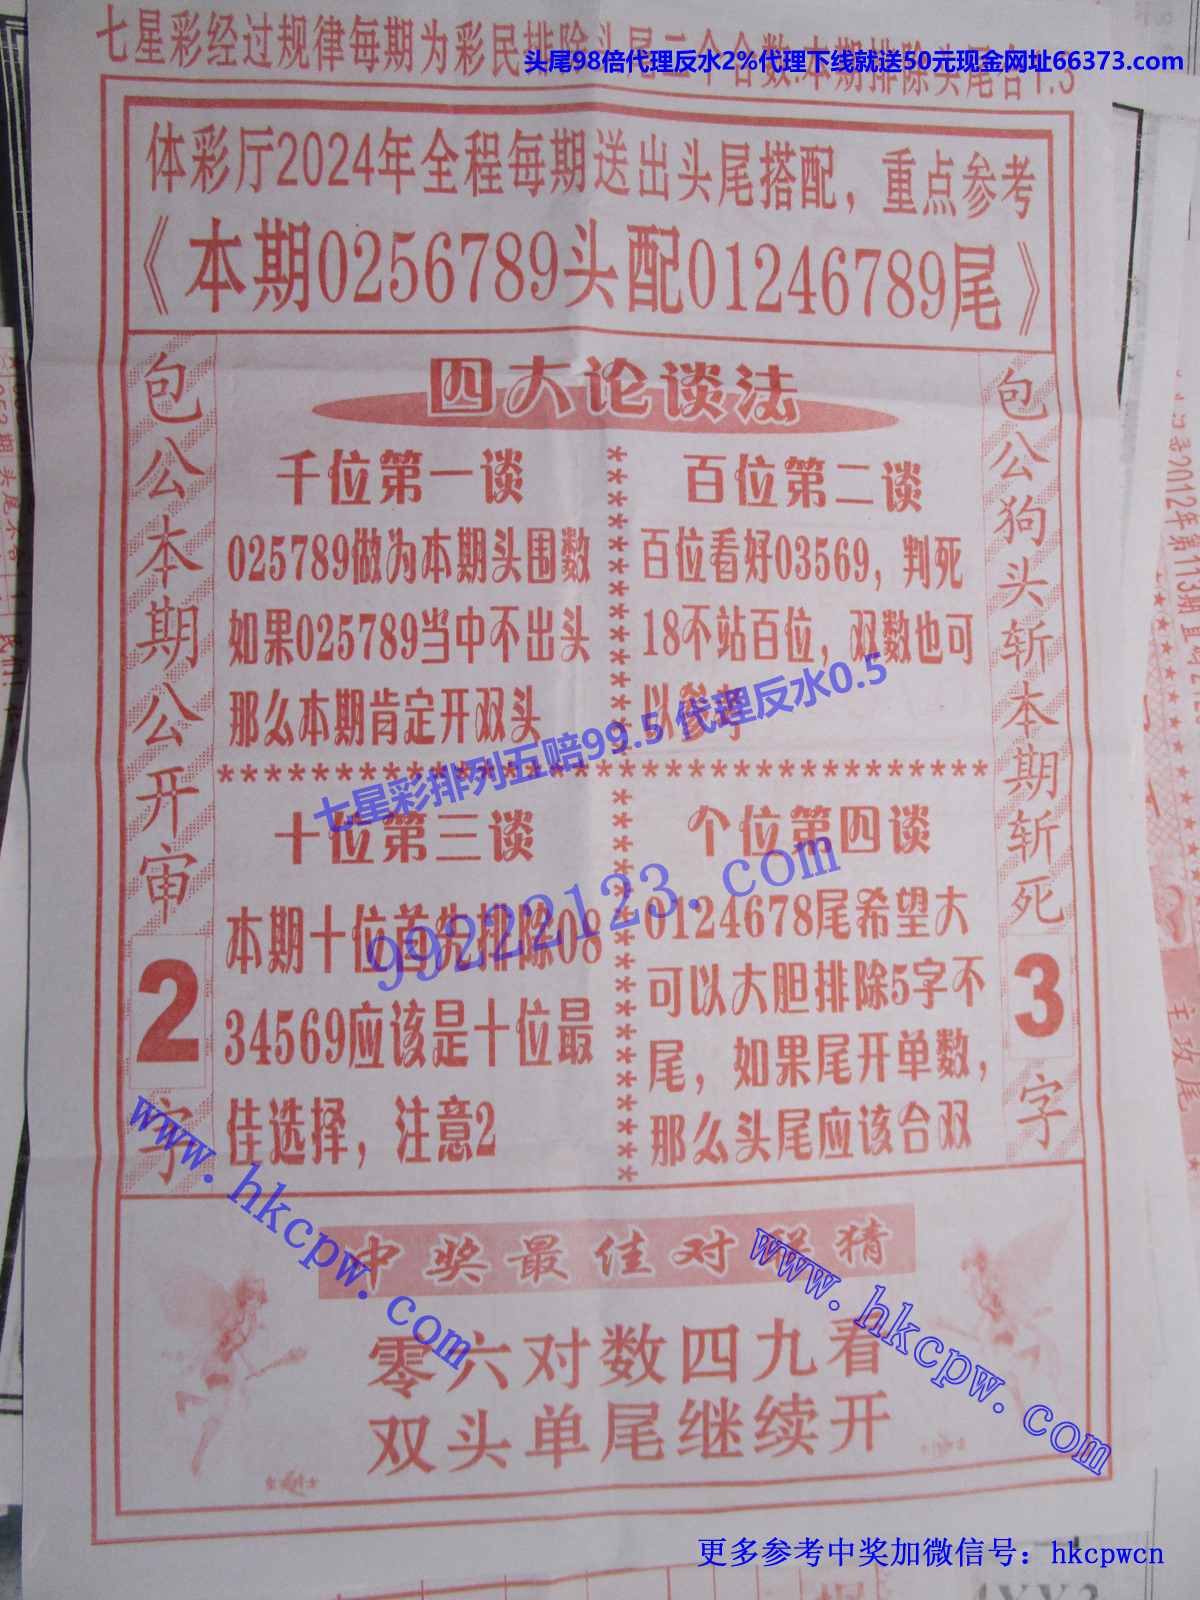 七星彩经过规律每期为彩民排除头尾二个合数:本期排除头尾合1.3
头尾98倍代理反水2%代理下线就送50元现金网址66373.com
体彩厅2024年全程每期送出头尾搭配，重点参考
《本期0256789头配01246789尾》
包公本期公开审2字
四大论谈法
千位第一谈
025789做为本期头围数
如果025789当中不出头
那么本期肯定开双头
百位第二谈
百位看好03569，判死
18不站百位，双数也可
以参考
七星彩排列五赔99.5 代理反水0.5
99222123.com
十位第三谈
本期十位首先排除08
34569应该是十位最
佳选择，注意2
个位第四谈
0124678尾希望大
可以大胆排除5字不
尾，如果尾开单数，
那么头尾应该合双
包公狗头斩本期斩死3字
www.hkcpw.com
www.hkcpw.com
中奖最佳对联猜
零六对数四九看
双头单尾继续开
更多参考中奖加微信号：hkcpwcn